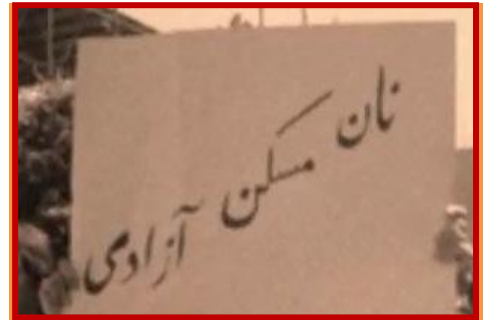 نان مسکن آزادی